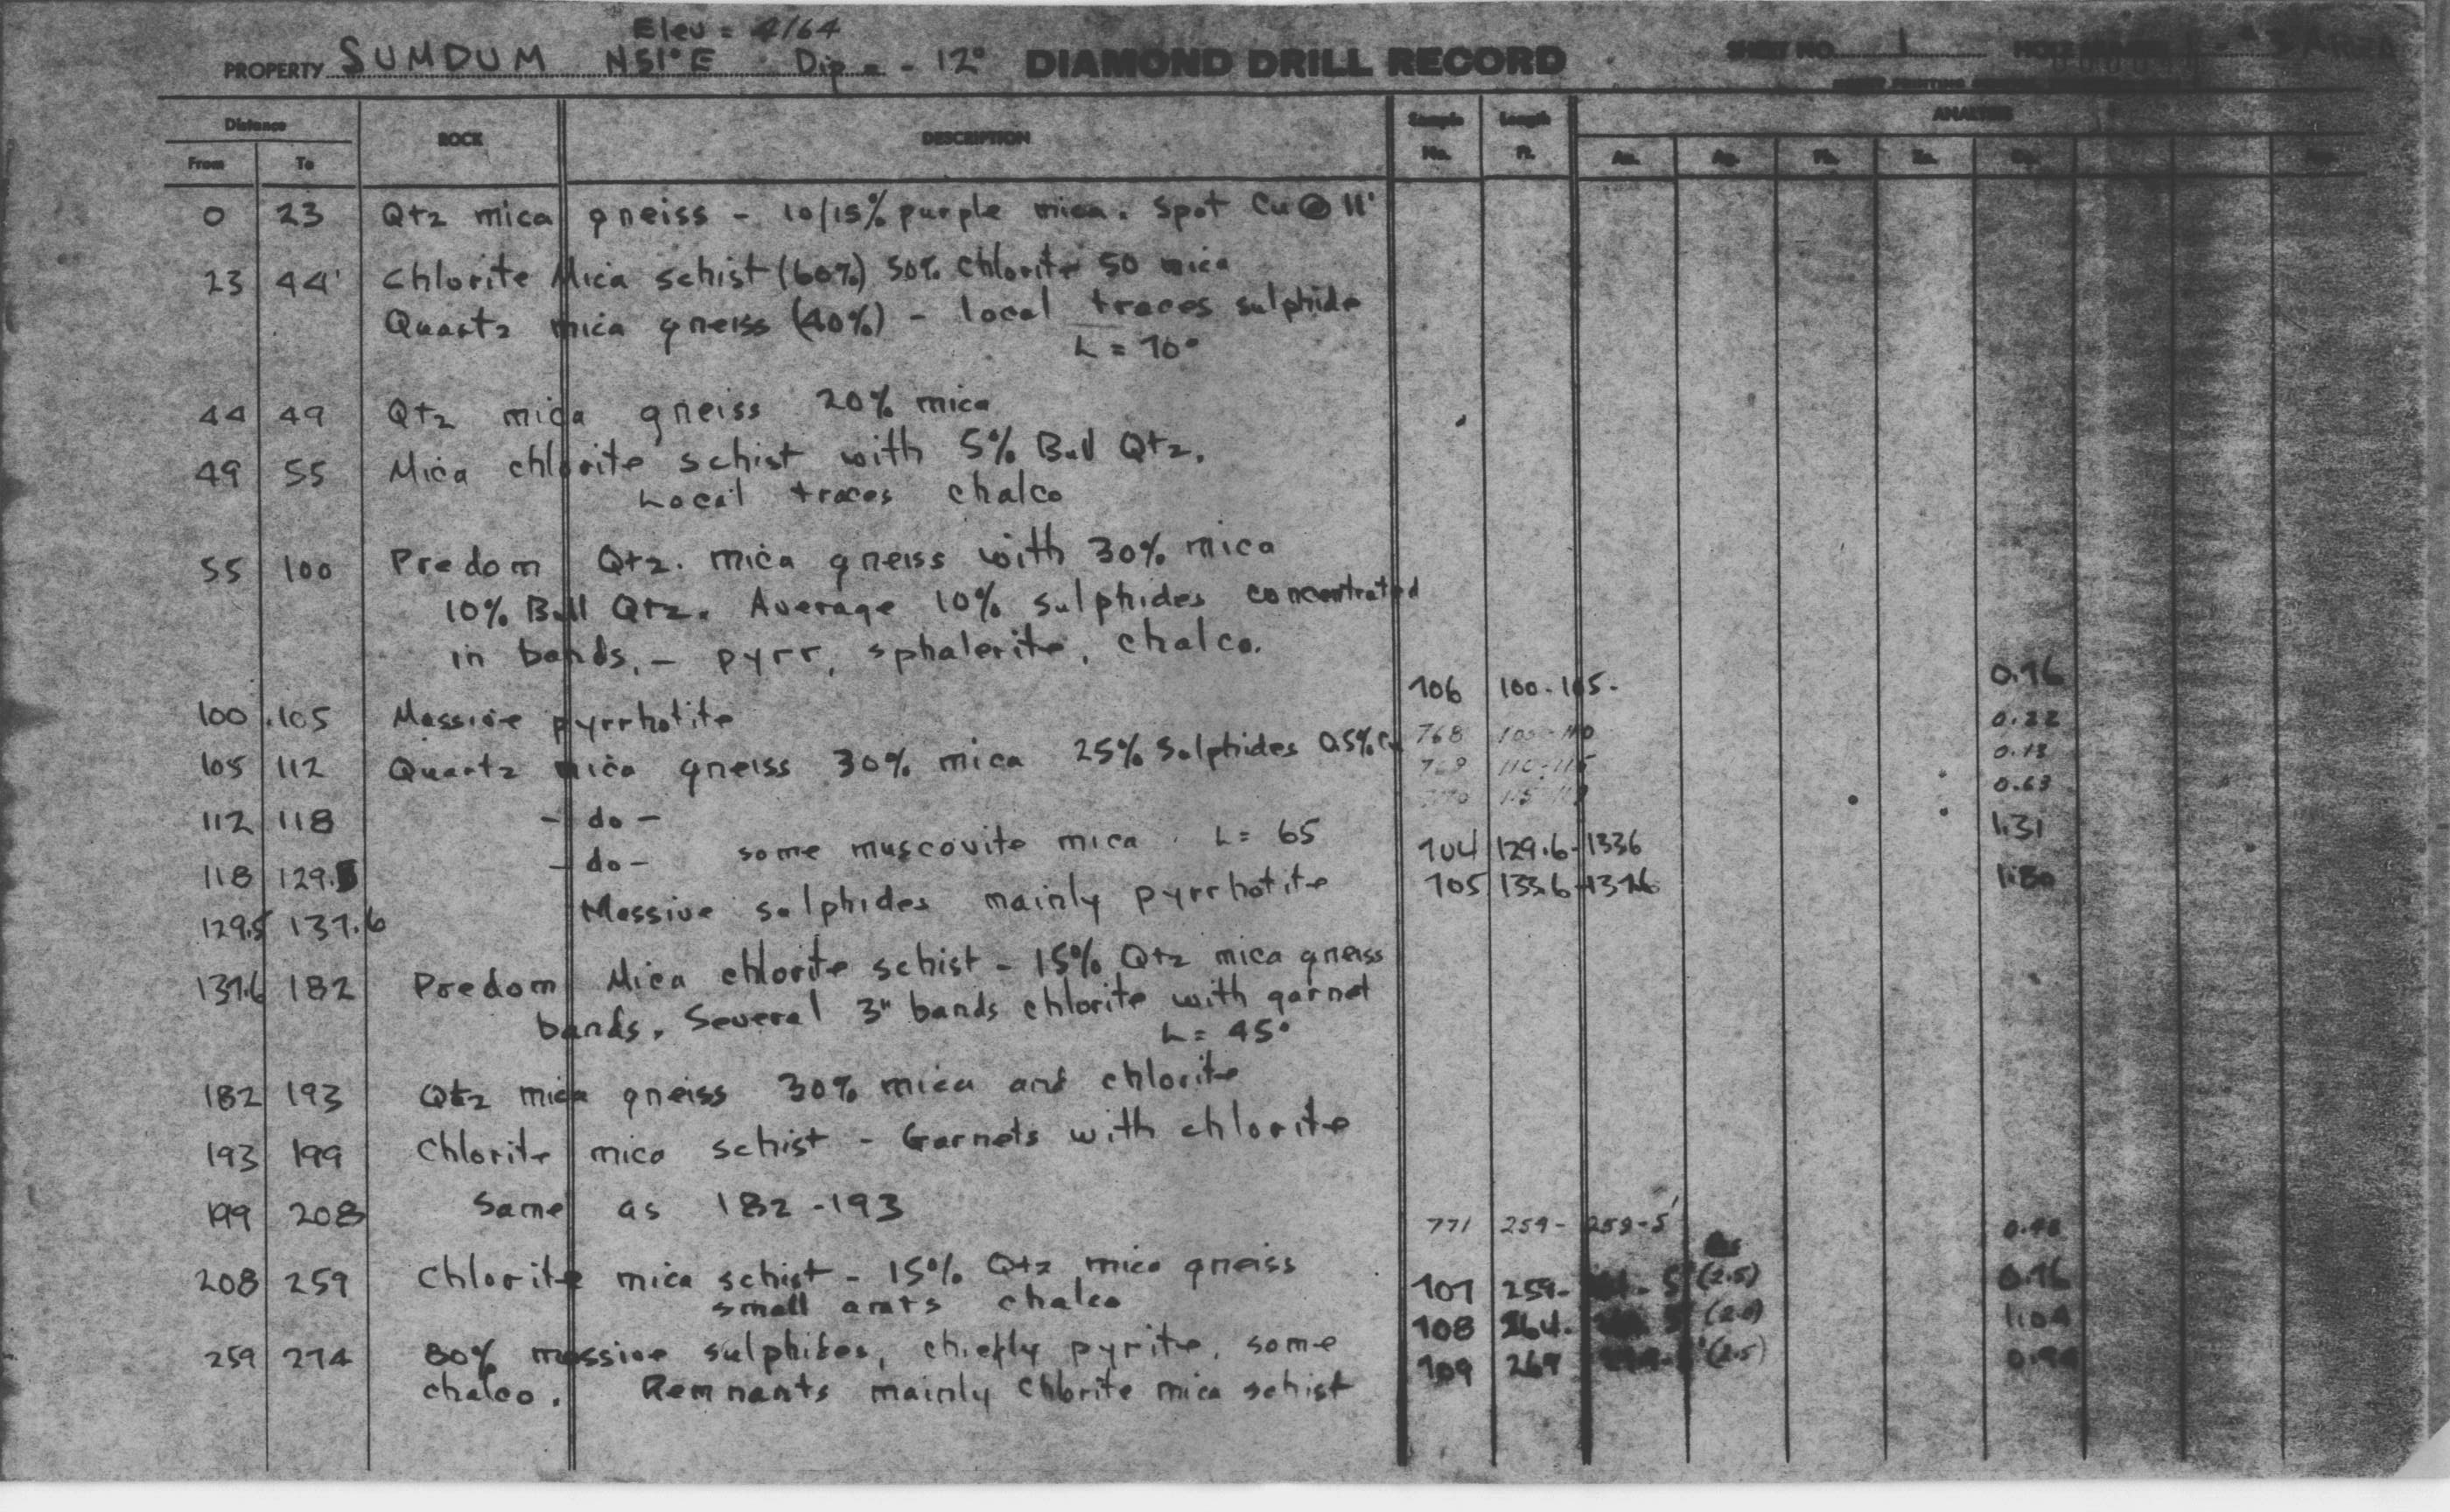 Elev = 4164
PROPERTY SUMDUM N51°E Dip = - 12° DIAMOND DRILL RECORD SHEET NO. 1
Distance ROCK DESCRIPTION Sample No. Length Ft. ANALYSIS
From To
0 23 Qtz mica gneiss - 10/15% purple mica. Spot Cu @ 11'
23 44' Chlorite Mica schist (60%) 50% chlorite 50 mica
Quartz mica gneiss (40%) - local traces sulphide
L = 70°
44 49 Qtz mica gneiss 20% mica
49 55 Mica chlorite schist with 5% Bull Qtz.
Local traces chalco
55 100 Predom Qtz. mica gneiss with 30% mica
10% Bull Qtz. Average 10% sulphides concentrated
in bands, - pyrr, sphalerite, chalco.
706 100-105- 0.76
100 105 Massive pyrrhotite
768 105-110 0.22
105 112 Quartz mica gneiss 30% mica 25% Sulphides 0.5% Cu
769 110-115 0.13
0.63
112 118 - do -
118 129.5 - do - some muscovite mica L = 65
704 129.6-133.6 1.31
129.5 137.6 Massive sulphides mainly pyrrhotite
705 133.6-137.6 1.80
137.6 182 Predom Mica chlorite schist - 15% Qtz mica gneiss
bands. Several 3" bands chlorite with garnet
L = 45°
182 193 Qtz mica gneiss 30% mica and chlorite
193 199 Chlorite mica schist - Garnets with chlorite
199 208 Same as 182-193
771 259-
208 259 Chlorite mica schist - 15% Qtz mica gneiss
small amts chalco
707 259- (2.5) 0.76
708 264- 1.04
259 274 80% massive sulphides, chiefly pyrite, some
709 269 (2.5)
chalco. Remnants mainly chlorite mica schist